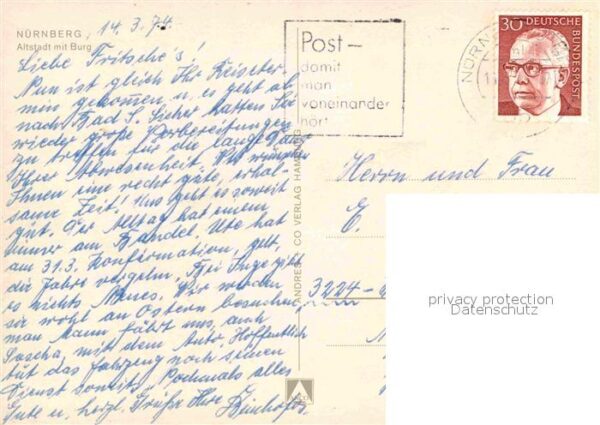 NÜRNBERG, 14.3.74
Altstadt mit Burg
Liebe Fritsche's!
Nun ist gleich Ihr Reiseter-
min gekommen u. es geht ab
nach Bad S. Sicher hatten Sie
wieder große Vorbereitungen
zu treffen für die lange Zeit
Ihrer Abwesenheit. Wir wünschen
Ihnen eine recht gute, erhol-
same Zeit! Uns geht es soweit
gut. Der Alltag hat einen
immer am Bandel. Ute hat
am 31.3. Konfirmation, gell,
die Jahre vergehn. Bei Inge gibt
es nichts Neues. Wir werden
sie wohl an Ostern besuchen,
man Mann fährt uns, auch
Sascha, mit dem Auto. Hoffentlich
tut das Fahrzeug noch seinen
Dienst soweit. Nochmals alles
Gute u. herzl. Grüße Ihre
ANDRES + CO VERLAG HAMBURG
Post –
damit
man
voneinander
hört
NÜRN
30 DEUTSCHE
BUNDESPOST
Herrn und Frau
E.
3224-
privacy protection
Datenschutz